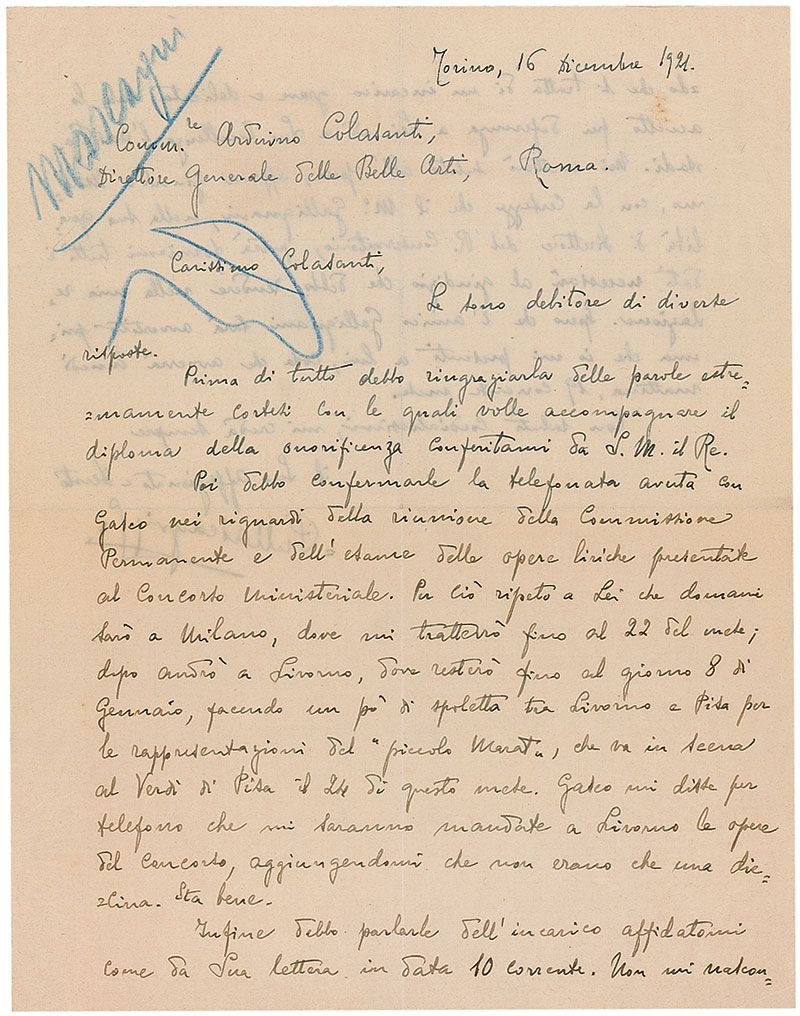 Mascagni
Torino, 16 Dicembre 1921.
Comm.re Arduino Colasanti,
Direttore Generale delle Belle Arti, Roma.
Carissimo Colasanti,
Le sono debitore di diverse
risposte.
Prima di tutto debbo ringraziarla delle parole estre=
=mamente cortesi con le quali volle accompagnare il
diploma della onorificenza conferitami da S. M. il Re.
Poi debbo confermarle la telefonata avuta con
Gasco nei riguardi della riunione della Commissione
Permanente e dell'esame delle opere liriche presentate
al Concorso Ministeriale. Per ciò ripeto a Lei che domani
sarò a Milano, dove mi tratterrò fino al 22 del mese;
dopo andrò a Livorno, dove resterò fino al giorno 8 di
Gennaio, facendo un pò di spoletta tra Livorno e Pisa per
le rappresentazioni del "piccolo Marat", che va in scena
al Verdi di Pisa il 24 di questo mese. Gasco mi disse per
telefono che mi saranno mandate a Livorno le opere
del Concorso, aggiungendomi che non erano che una die=
=cina. Sta bene.
Infine debbo parlarle dell'incarico affidatomi
come da Sua lettera in data 10 corrente. Non mi nascon=